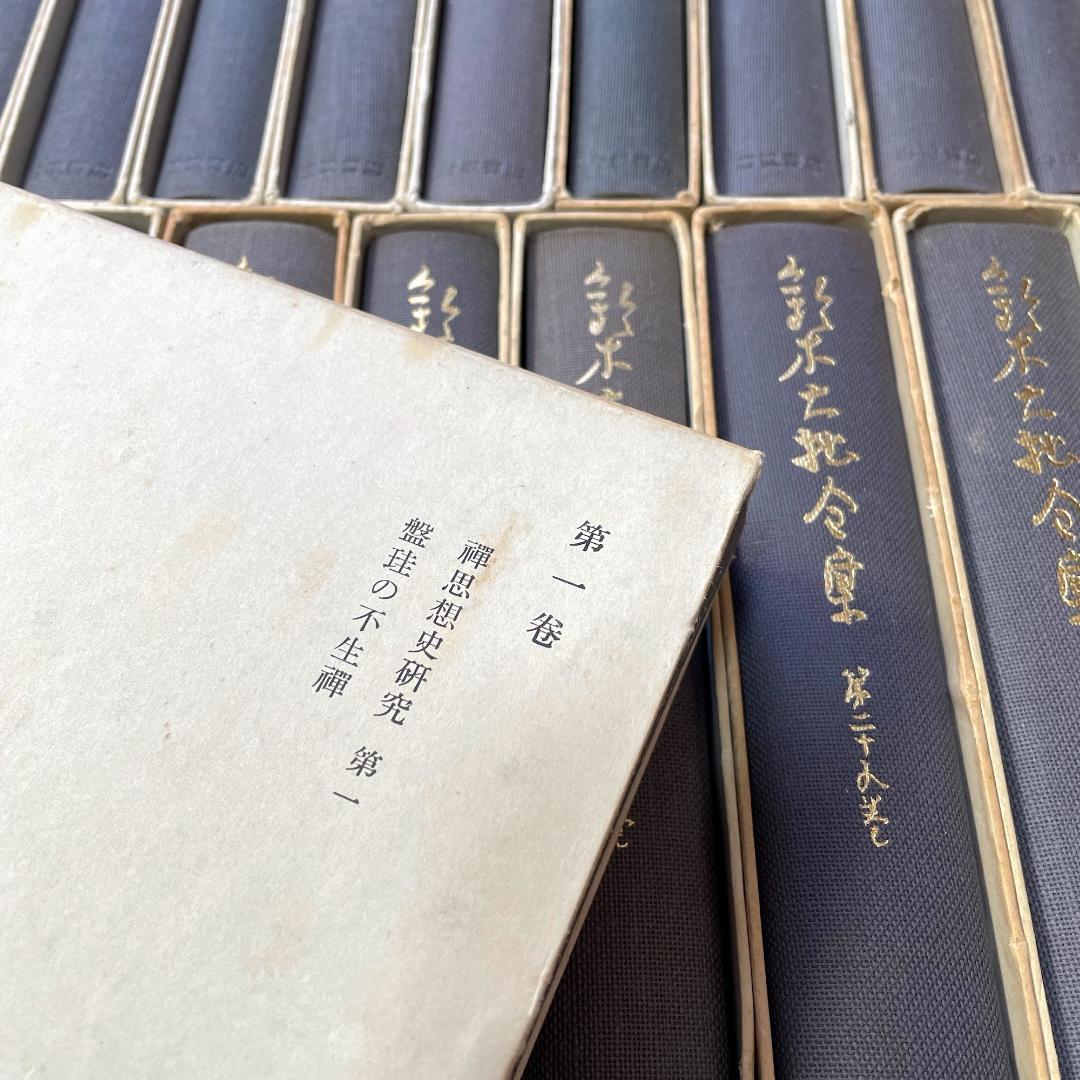 第一卷
禪思想史研究 第一
盤珪の不生禪
鈴木
鈴木大拙全集
第二十五巻
鈴木大拙全集